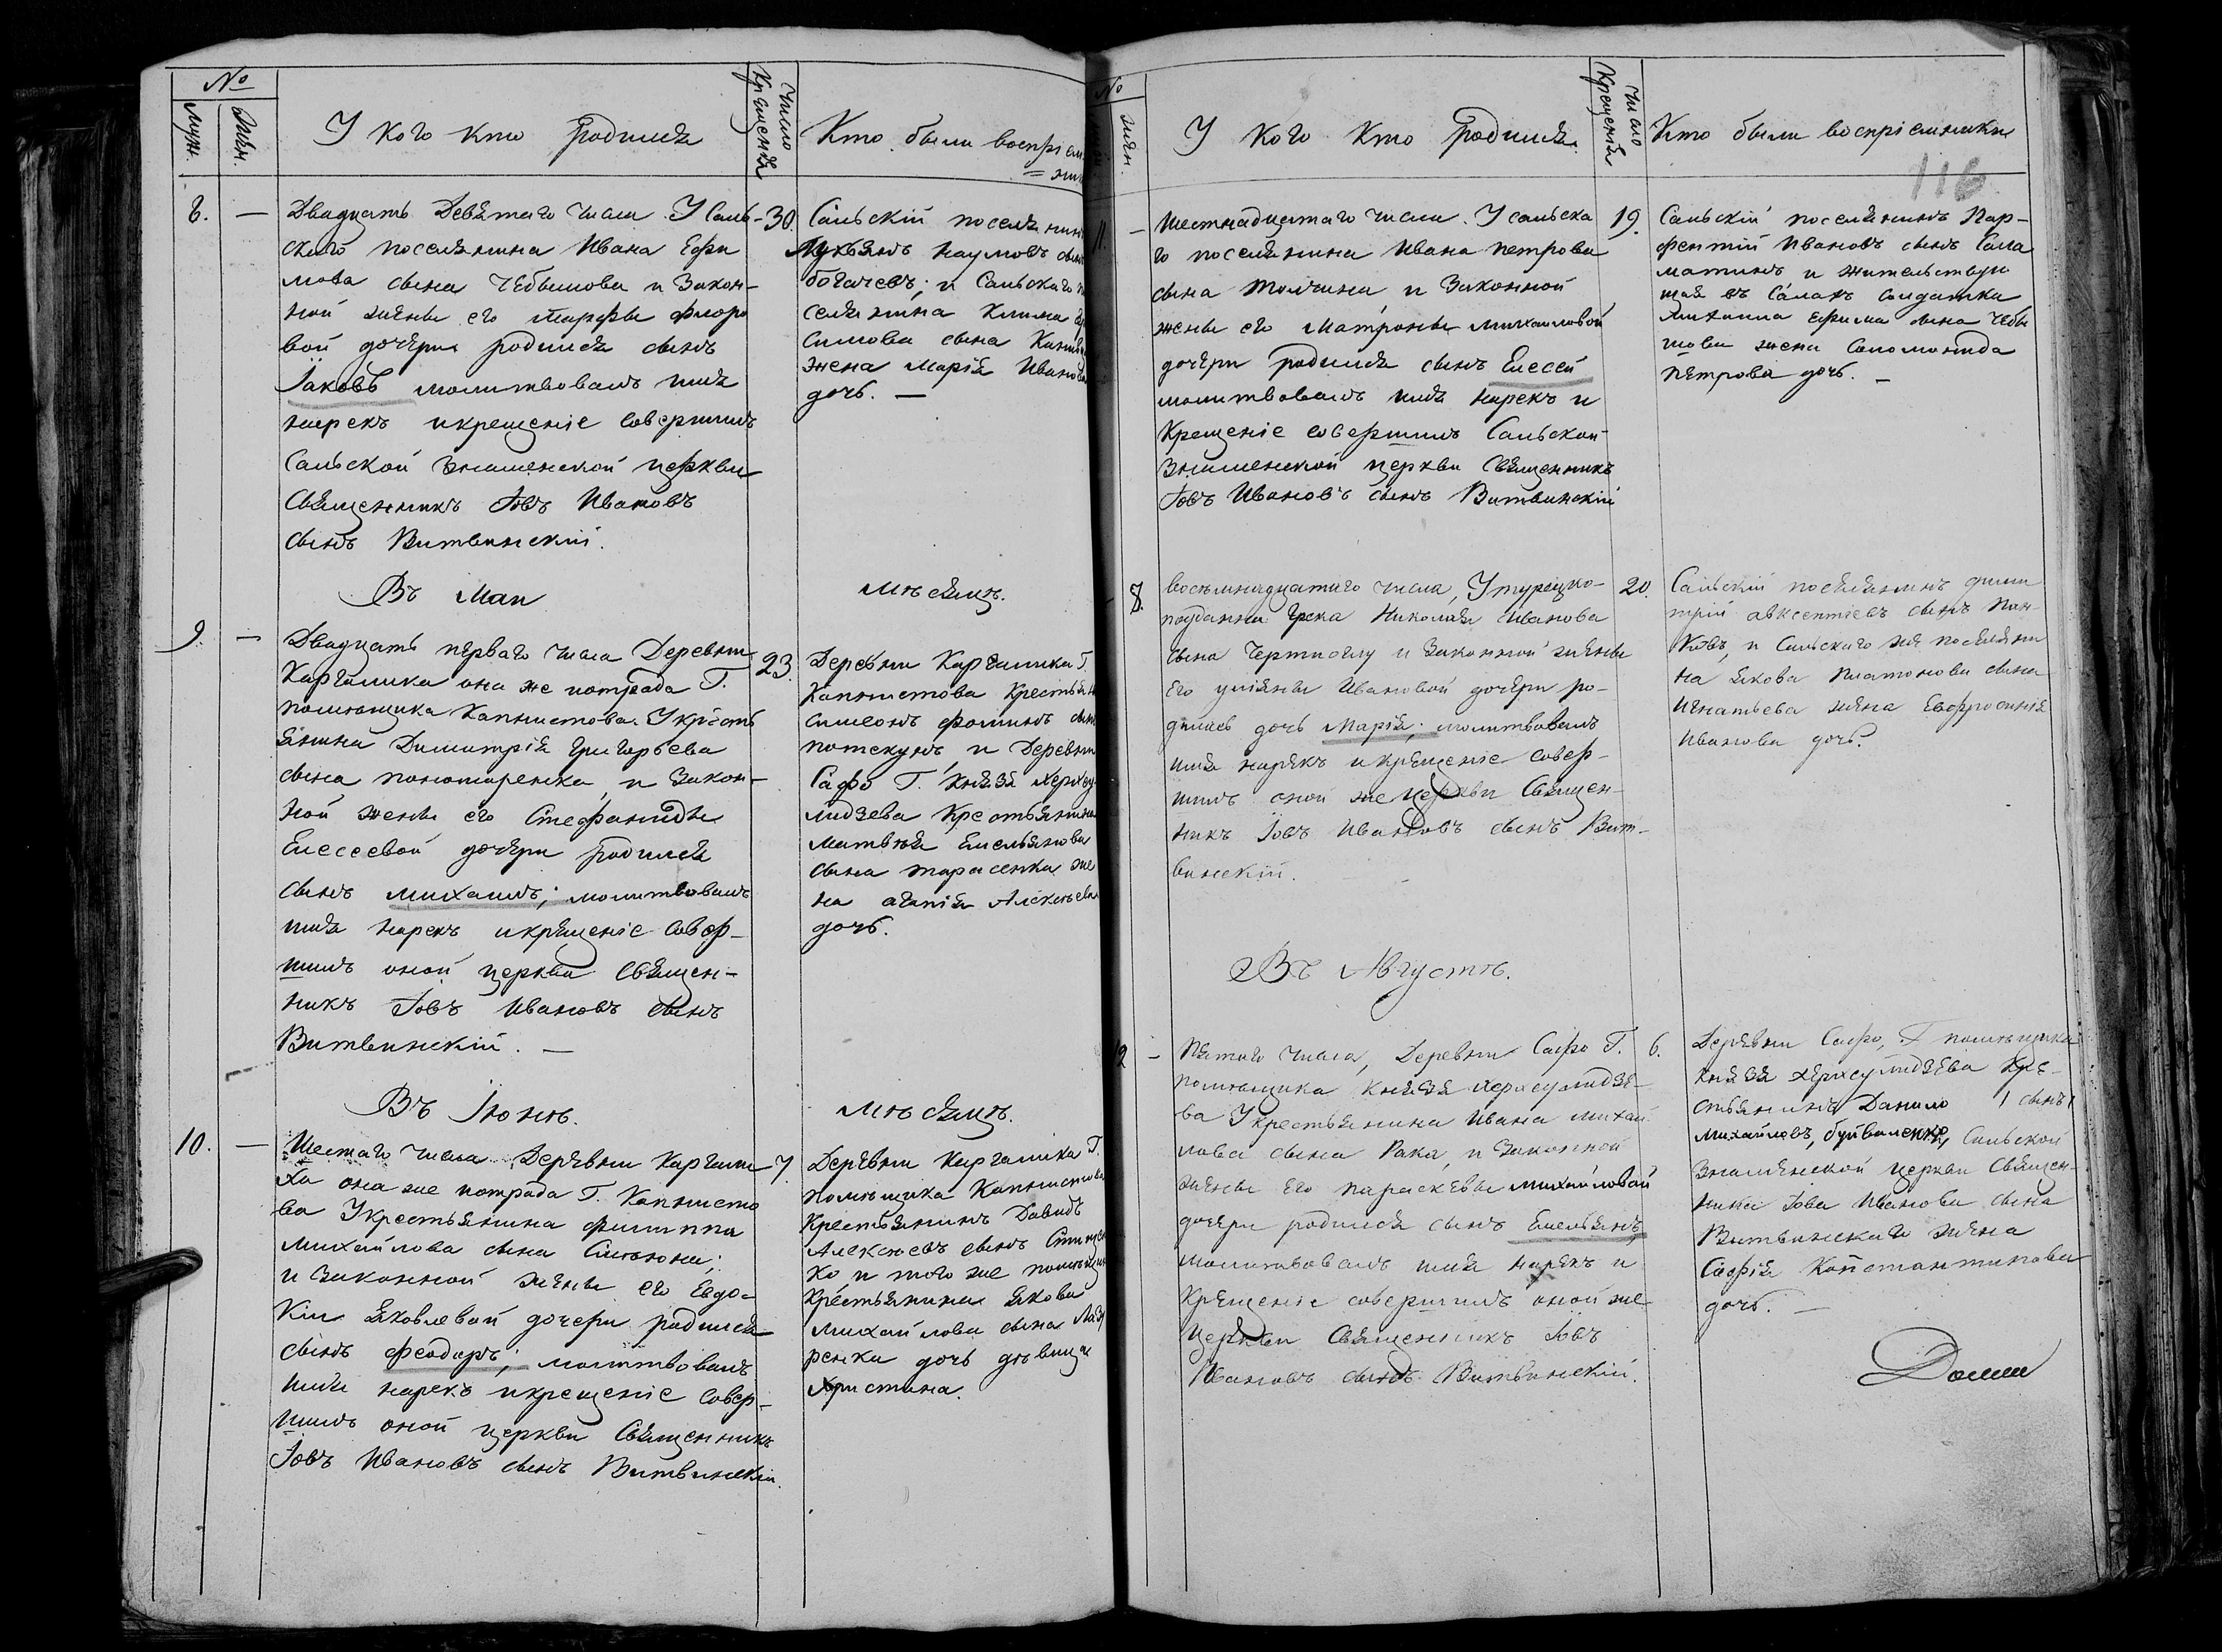 №
мужс.
женс.
У кого кто родился
Число
Крещенія
Кто были воспріем
=
8. — Двадцать Девятаго числа. У Саль-
скаго поселянина Ивана Ефи
мова сына Чебышова и Закон-
ной жены его Марфы Флоро
вой дочери родился сынъ
Іаковъ молитвовалъ имя
нарекъ и крещеніе совершилъ
Сальской Знаменской церкви
Священникъ Іовъ Ивановъ
сынъ Витвинскій.
30.
Сальскій поселянинъ
Лукьянъ Наумовъ сынъ
богачевъ; и Сальскаго по
селянина Клима
симова сына
жена Марія Иванова
дочь. —
Въ Маи
Мѣсяцѣ.
9. — Двадцать перваго числа Деревни
Каргалика она же потрада Г.
помѣщика Капнистова. У кресть
янина Димитрія Григорьева
сына пономаренка, и Закон-
ной жены его Стефаниды
Елесеевой дочери родился
сынъ михаилъ; молитвовалъ
имя нарекъ и крещеніе совер-
шилъ оной церкви Священ-
никъ Іовъ Ивановъ сынъ
Витвинскій. —
23.
Деревни Каргалика Г.
Капнистова Крестьянинъ
Симеонъ фоминъ сынъ
потекунъ, и Деревни
Сафо Г. Князя Херхеу
лидзева Крестьянина
Матвѣя Емельянова
сына тарасенка же
на агапія Алексѣева
дочь.
Въ Іюнѣ.
Мѣсяцѣ.
10. — Шестаго числа Деревни Каргали
ка она же потрада Г. Капнисто
ва У крестьянина филиппа
Михайлова сына
и законной жены его Евдо-
кіи Яковлевой дочери родился
сынъ феодоръ; молитвовалъ
имя нарекъ и крещеніе совер-
шилъ оной церкви Священникъ
Іовъ Ивановъ сынъ Витвинскій.
7.
Деревни Каргалика Г.
помѣщика Капнистова
Крестьянинъ Давидъ
Алексѣевъ сынъ
ко и того же помѣщика
Крестьянина Якова
Михайлова сына Лаза
ренка дочь дѣвица
Христина.
№
жен.
У кого кто родился
Число
Крещенія
Кто были воспріемники
116
11. — Шестнадцатаго числа. У сальска
го поселянина Ивана петрова
сына Толчина, и Законной
жены его Матроны Михаиловой
дочери родился сынъ Елесей
молитвовалъ имя нарекъ и
Крещеніе совершилъ Сальской
Знаменской церкви Священникъ
Іовъ Ивановъ сынъ Витвинскій
19.
Сальскій поселянинъ Пар-
фентій Ивановъ сынъ Сала
матинъ и жительствую
щая въ Салахъ солдатка
Антипа Ефима сына Чебы
шова жена Соломонида
петрова дочь. —
8. восемнадцатаго числа, У турецко-
подданна Грека Николая Иванова
сына Чертиоглу и Законной жены
его уліяны Ивановой дочери ро-
дилась дочь Марія; молитвовалъ
имя нарекъ и крещеніе совер-
шилъ оной же церкви Священ-
никъ Іовъ Ивановъ сынъ Вит-
винскій.
20.
Сальскій поселянинъ дими
трій авксентіевъ сынъ Пан-
ковъ, и Сальскаго же поселяни
на Якова Платонова сына
Игнатьева жена Евфросинія
Иванова дочь.
Въ Августѣ.
12 — Пятаго числа, Деревни Сафо Г.
помѣщика Князя Херхеулидзе-
ва У крестьянина Ивана Михай
лова сына Рака, и Законной
жены его параскевы михайловой
дочери родился сынъ Емельянъ,
молитвовалъ имя нарекъ и
Крещеніе совершилъ оной же
церкви Священникъ Іовъ
Ивановъ сынъ Витвинскій.
6.
Деревни Сафо, Г помѣщика
Князя Херхеулидзева Кре-
стьянинъ Данило / сынъ /
михайловъ, буйваленко, Сальской
Знаменской церкви Священ-
ника Іова Иванова сына
Витвинскаго жена
Софія Константинова
дочь. —